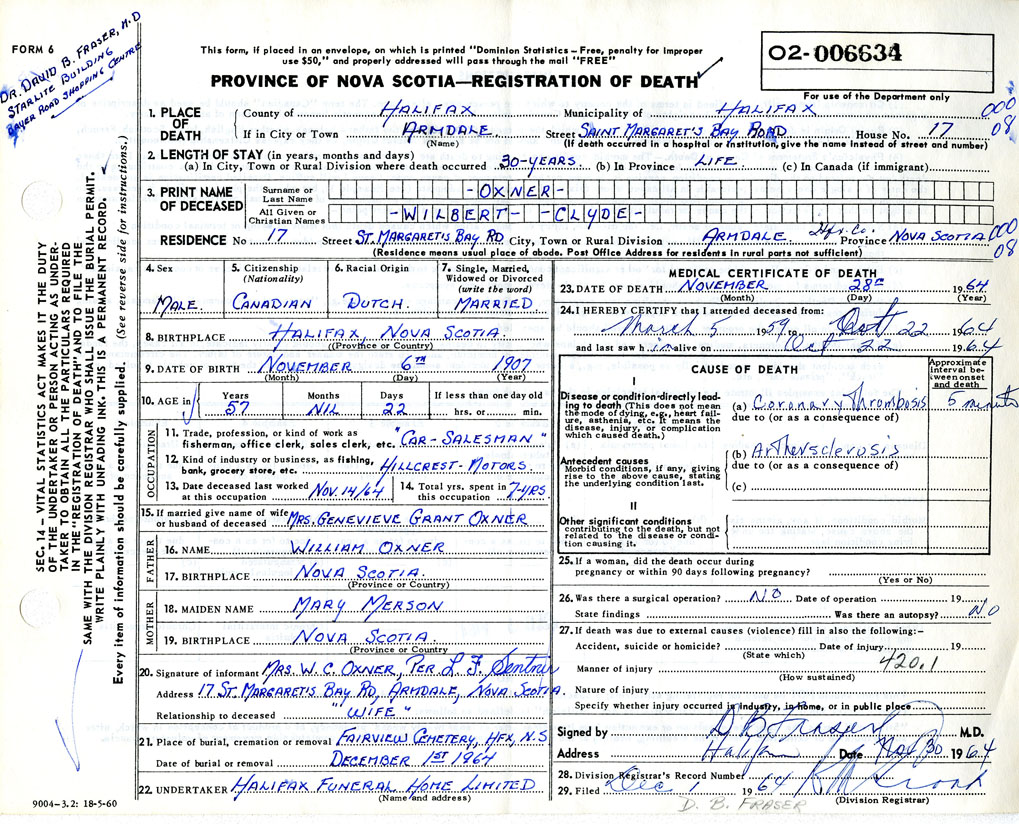 FORM 6
DR. DAVID B. FRASER, M.D
STARLITE BUILDING
BAYER ROAD SHOPPING CENTRE
This form, if placed in an envelope, on which is printed "Dominion Statistics – Free, penalty for improper
use $50," and properly addressed will pass through the mail "FREE"
PROVINCE OF NOVA SCOTIA—REGISTRATION OF DEATH
02-006634
For use of the Department only
000
08
1. PLACE OF DEATH
County of HALIFAX Municipality of HALIFAX
If in City or Town ARMDALE Street SAINT MARGARET'S BAY ROAD House No. 17
(Name) (If death occurred in a hospital or institution, give the name instead of street and number)
2. LENGTH OF STAY (in years, months and days)
(a) In City, Town or Rural Division where death occurred 30-YEARS. (b) In Province LIFE (c) In Canada (if immigrant)
3. PRINT NAME OF DECEASED
Surname or Last Name -OXNER-
All Given or Christian Names -WILBERT- -CLYDE-
RESIDENCE No 17 Street ST. MARGARET'S BAY RD City, Town or Rural Division ARMDALE. Hfx. Co. Province NOVA SCOTIA 000
08
(Residence means usual place of abode. Post Office Address for residents in rural parts not sufficient)
SEC. 14 – VITAL STATISTICS ACT MAKES IT THE DUTY
OF THE UNDERTAKER OR PERSON ACTING AS UNDER-
TAKER TO OBTAIN ALL THE PARTICULARS REQUIRED
IN THE "REGISTRATION OF DEATH" AND TO FILE THE
SAME WITH THE DIVISION REGISTRAR WHO SHALL ISSUE THE BURIAL PERMIT.
WRITE PLAINLY WITH UNFADING INK. THIS IS A PERMANENT RECORD.
Every item of information should be carefully supplied. (See reverse side for instructions.)
4. Sex
MALE.
5. Citizenship
(Nationality)
CANADIAN
6. Racial Origin
DUTCH.
7. Single, Married,
Widowed or Divorced
(write the word)
MARRIED
8. BIRTHPLACE HALIFAX, NOVA SCOTIA.
(Province or Country)
9. DATE OF BIRTH NOVEMBER 6TH 1907
(Month) (Day) (Year)
10. AGE in
Years Months Days If less than one day old
57 NIL 22 hrs. or min.
OCCUPATION
11. Trade, profession, or kind of work as
fisherman, office clerk, sales clerk, etc. "CAR-SALESMAN"
12. Kind of industry or business, as fishing,
bank, grocery store, etc. HILLCREST-MOTORS.
13. Date deceased last worked
at this occupation NOV. 14/64
14. Total yrs. spent in
this occupation 7-YRS
15. If married give name of wife
or husband of deceased MRS. GENEVIEVE GRANT OXNER
FATHER
16. NAME WILLIAM OXNER
17. BIRTHPLACE NOVA SCOTIA.
(Province or Country)
MOTHER
18. MAIDEN NAME MARY MERSON
19. BIRTHPLACE NOVA SCOTIA.
(Province or Country
20. Signature of informant MRS. W. C. OXNER, PER L. F. Sentner
Address 17 ST. MARGARET'S BAY RD, ARMDALE, NOVA SCOTIA.
Relationship to deceased "WIFE"
21. Place of burial, cremation or removal FAIRVIEW CEMETERY, HFX, N.S
Date of burial or removal DECEMBER 1ST 1964
22. UNDERTAKER HALIFAX FUNERAL HOME LIMITED
(Name and address)
9004-3.2: 18-5-60
MEDICAL CERTIFICATE OF DEATH
23. DATE OF DEATH NOVEMBER 28TH 1964
(Month) (Day) (Year)
24. I HEREBY CERTIFY that I attended deceased from:
March 5 1959 to Oct 22 1964
and last saw him alive on Oct 22 1964
CAUSE OF DEATH
Approximate
interval be-
tween onset
and death
I
Disease or condition directly lead-
ing to death (This does not mean
the mode of dying, e.g., heart fail-
ure, asthenia, etc. It means the
disease, injury, or complication
which caused death.)
(a) Coronary Thrombosis 5 minuto
due to (or as a consequence of)
Antecedent causes
Morbid conditions, if any, giving
rise to the above cause, stating
the underlying condition last.
(b) Arthersclerosis
due to (or as a consequence of)
(c)
II
Other significant conditions
contributing to the death, but not
related to the disease or condi-
tion causing it.
25. If a woman, did the death occur during
pregnancy or within 90 days following pregnancy?
(Yes or No)
26. Was there a surgical operation? NO Date of operation 19
State findings Was there an autopsy? NO
27. If death was due to external causes (violence) fill in also the following:–
Accident, suicide or homicide? Date of injury 19
(State which)
420.1
Manner of injury
(How sustained)
Nature of injury
Specify whether injury occurred in industry, in home, or in public place
Signed by D B Fraser M.D.
Address Halifax Date Nov 30 1964
28. Division Registrar's Record Number
29. Filed Dec 1 1964
(Division Registrar)
D. B. FRASER